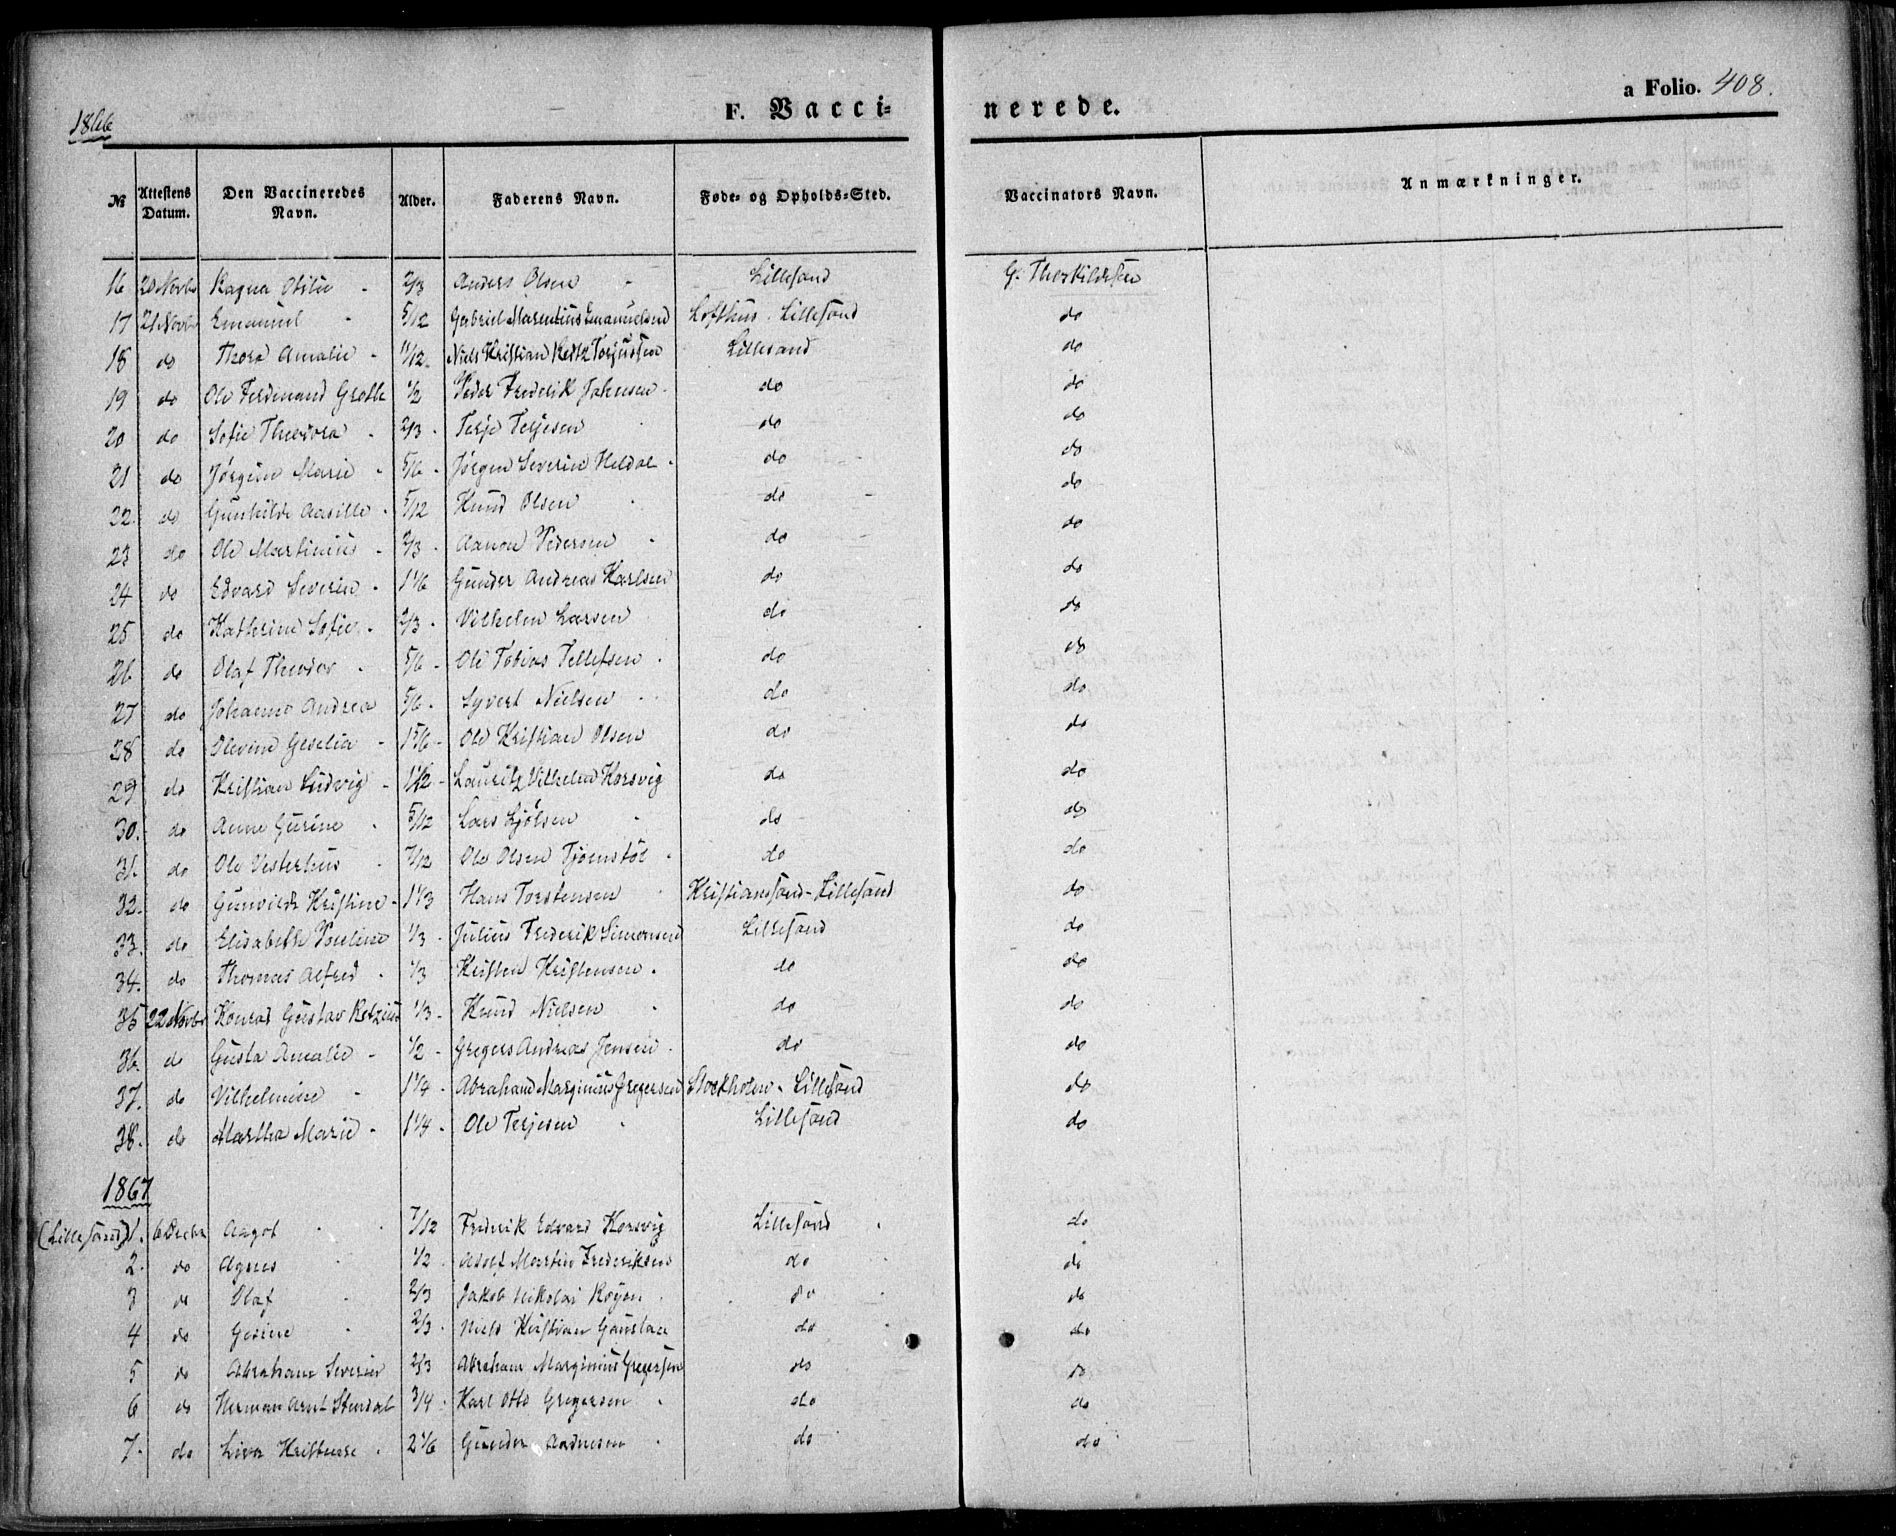 1866 F. Vaccinerede. a Folio. 408.
№ Attestens Datum. Den Vaccineredes Navn. Alder. Faderens Navn. Føde- og Opholds-Sted. Vaccinators Navn. Anmærkninger.
16 20 Novbr Ragna Otilie - 2/3 Anders Olsen - Lillesand G. Therkildsen
17 21 Novbr Emanuel - 5/12 Gabriel Marentius Emanuelsen Lofthus. Lillesand do
18 do Thora Amalie - 11/12 Niels Kristian Torjussen Lillesand do
19 do Ole Ferdinand Grothe 1/2 Peder Frederik Johnsen do do
20 do Sofie Theodora - 2/3 - Terje Terjesen do do
21 do Jørgine Marie - 5/6 - Jørgen Severin Heldal - do do
22. do Gunhilde Aasille - 5/12 Knud Olsen do do
23 do Ole Martinius - 2/3 - Aanon Pedersen - do do
24 do Edvard Severin - 1 1/6 Gunder Andreas Karlsen do do
25 do Kathrine Sofie - 2/3 - Vilhelm Larsen do do
26 do Olaf Theodor - 5/6 - Ole Tobias Tellefsen - do do
27 do Johanne Andrea 5/6 - Syvert Nielsen do do
28 do Olevine Geselia - 1 5/6 - Ole Kristian Olsen do do
29 do Kristian Ludvig - 1 1/2 - Lauritz Vilhelm Korsvig do do
30. do Anne Gurine - 5/12 Lars Ljølsen - do do
31. do Ole Vesterhus 7/12 Ole Olsen Tjomstøl - do do
32. do Gunvilde Kristine - 1 1/3 Hans Torstensen Kristianssand - Lillesand do
33. do Elisabeth Pauline 1/3 - Julius Frederik Simonsen Lillesand do
34. do Thomas Alfred - 1/3 Kristen Kristensen - do do
35 22 Novbr Konrad Gustav Retzius 1/3 - Knud Nielsen do do
36. do Gusta Amalie - 1/2 - Gregers Andreas Jensen - do do
37. do Vilhelmine - 1 1/4 - Abraham Marginius Gregersen Stockholm - Lillesand do
38. do Martha Marie - 1 1/4 - Ole Terjesen - Lillesand do
1867
(Lillesand) 1. 6 Decbr Aagot 7/12 Frederik Edvard Korsvig Lillesand do
2. do Agnes 1/2 Adolf Martin Frederiksen do do
3 do Olaf 2/3 Jakob Nikolai Røyon do do
4 do Gesine 2/3 - Niels Kristian Gaustad do do
5 do Abraham Severin 2/3 Abraham Marginius Gregersen do do
6 do Herman Arnt Stendal 3/4 - Karl Otto Gregersen - do do
7. do Lina - 2 1/6 Gunder Aadnesen - do do